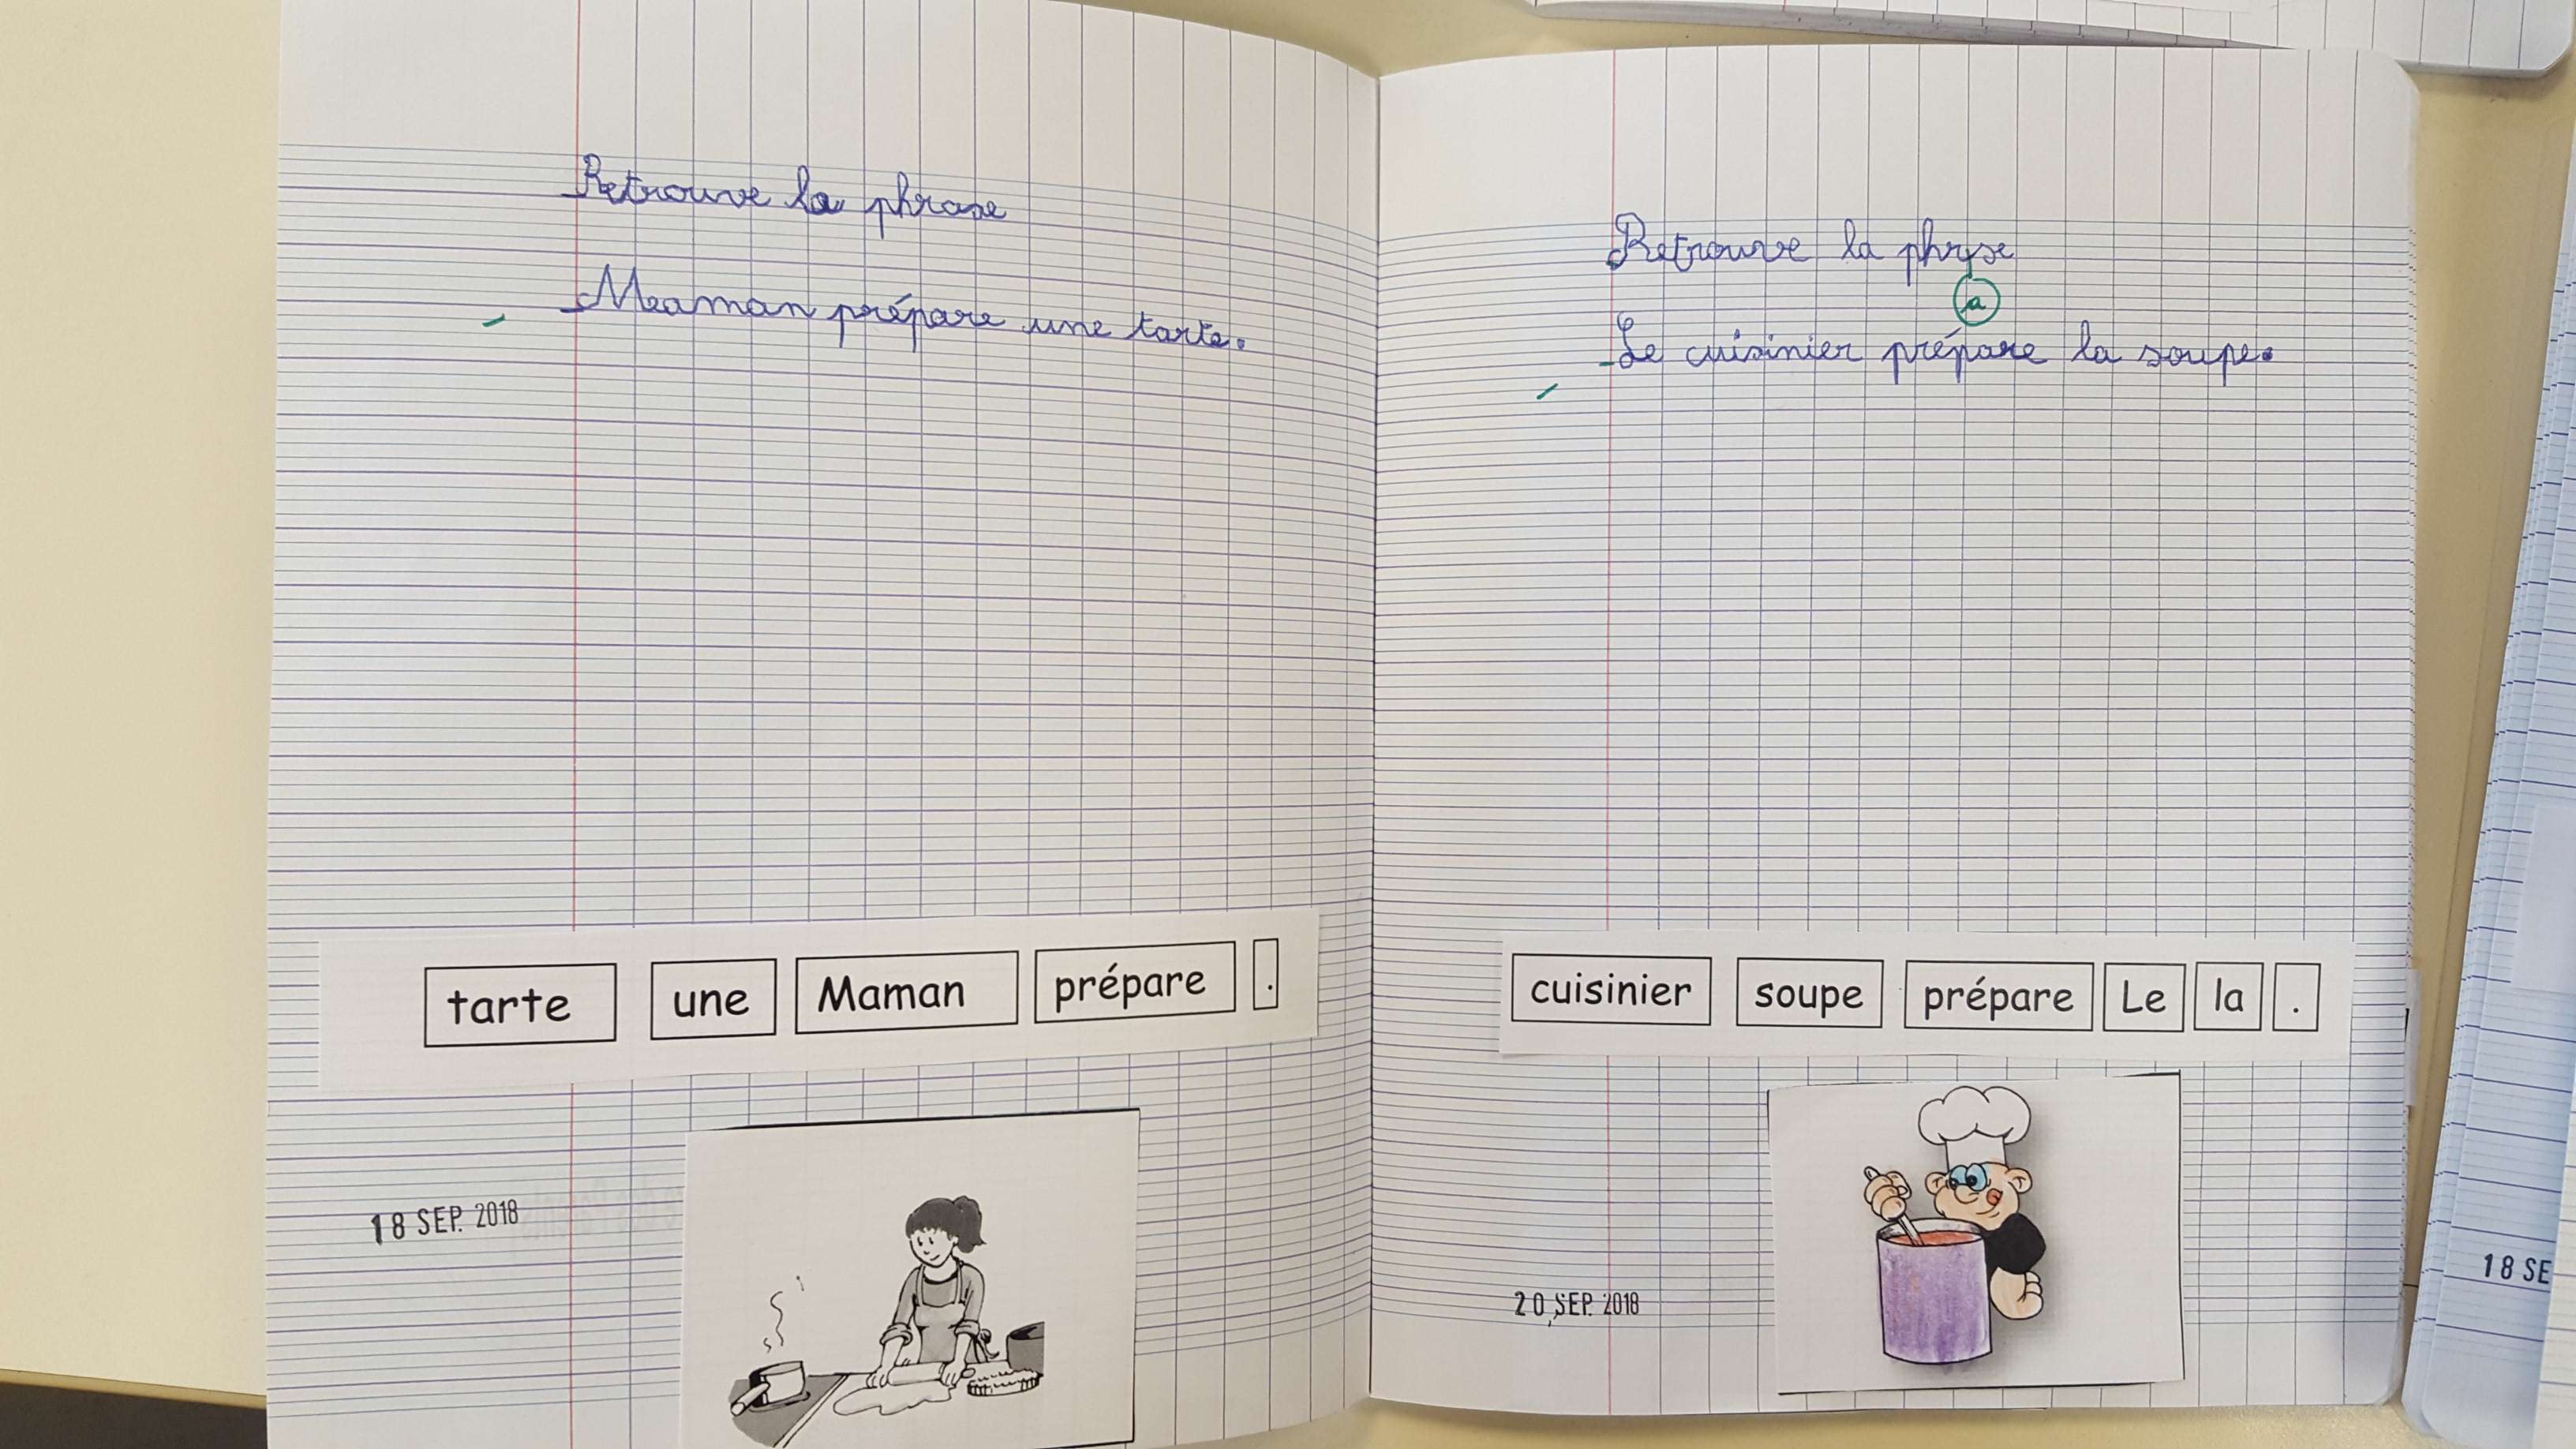 Retrouve la phrase
Meaman prépare une tarte.
tarte une Maman prépare .
18 SEP. 2018
Retrouve la phrse
a
Le cuisinier prépare la soupe.
cuisinier soupe prépare Le la .
20 SEP. 2018
18 SE